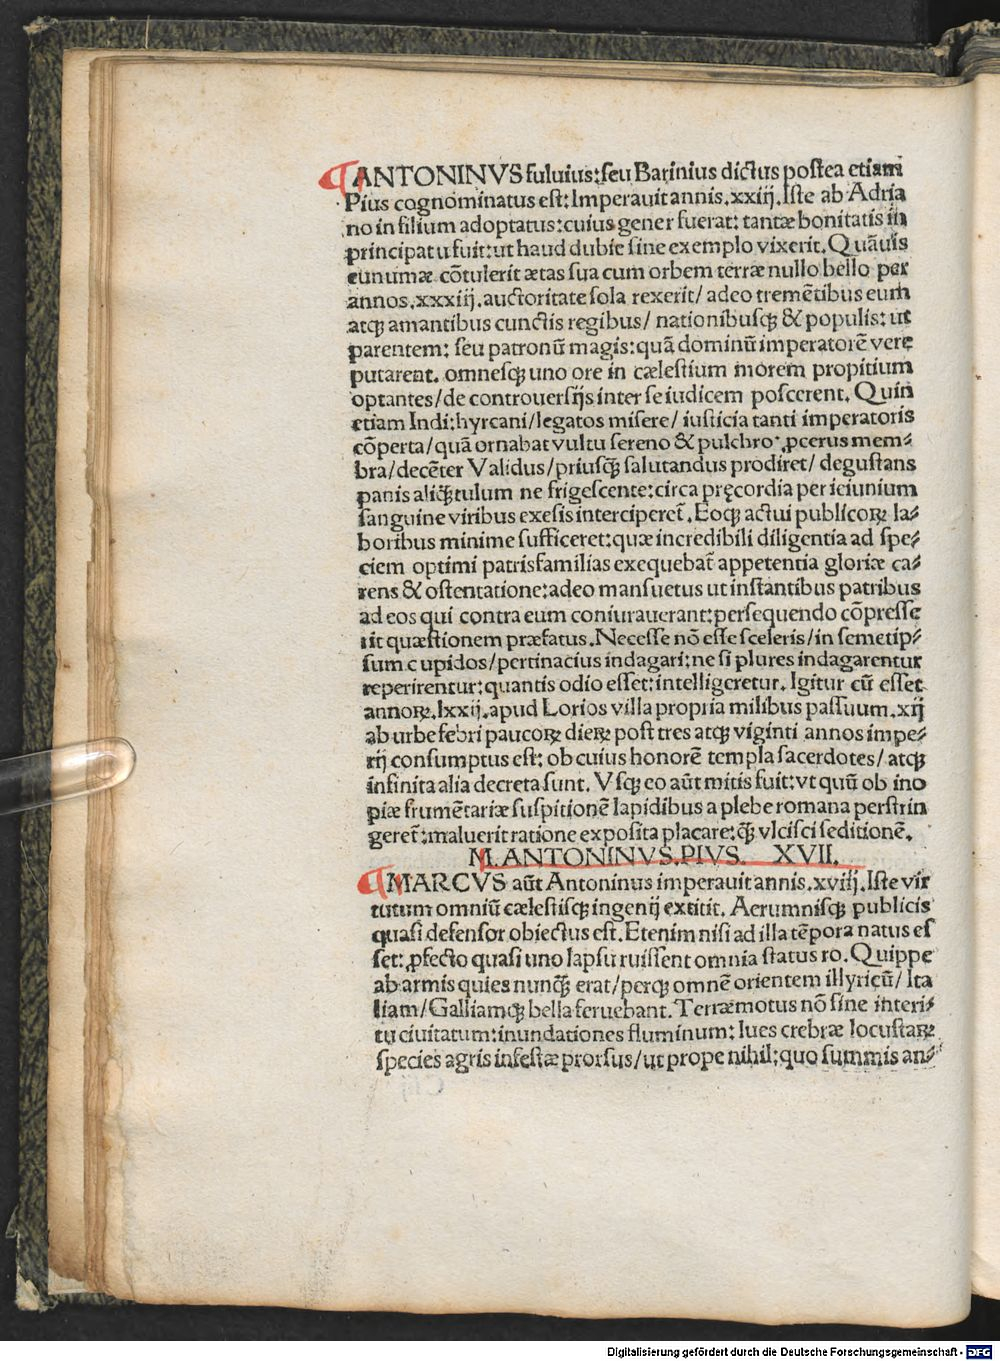 ¶ANTONINVS fuluius:ſeu Barinius dictus poſtea etiam
Pius cognominatus eſt: Imperauit annis.xxiij. Iſte ab Adria
no in filium adoptatus:cuius gener fuerat: tantæ bonitatis in
principatu fuit:ut haud dubie ſine exemplo vixerit.Quãuis
eunumæ cõtulerit ætas ſua cum orbem terræ nullo bello per
annos.xxxiij.auctoritate ſola rexerit/ adeo tremẽtibus eum
atqꝫ amantibus cunctis regibus/ nationibuſqꝫ & populis: ut
parentem: ſeu patronũ magis:quã dominũ imperatorẽ vere
putarent. omneſqꝫ uno ore in cæleſtium morem propitium
optantes/de controuerſijs inter ſe iudicem poſcerent. Quin
etiam Indi:hyrcani/legatos miſere/ iuſticia tanti imperatoris
cõperta/quã ornabat vultu ſereno & pulchro. ꝓcerus mem⸗
bra/decẽter Validus/priuſqꝫ̃ ſalutandus prodiret/ deguſtans
panis aliqꝫ̃tulum ne frigeſcente:circa pręcordia per ieiunium
ſanguine viribus exeſis interciperet̃. Eoqꝫ actui publicoꝝ la⸗
boribus minime ſufficeret:quæ incredibili diligentia ad ſpe⸗
ciem optimi patriſfamilias exequebat̃ appetentia gloriæ ca⸗
rens & oſtentatione:adeo manſuetus ut inſtantibus patribus
ad eos qui contra eum coniurauerant:perſequendo cõpreſſe
rit quæſtionem præfatus.Neceſſe nõ eſſe ſceleris/in ſemetip⸗
ſum cupidos/pertinacius indagari:ne ſi plures indagarentur
reperirentur:quantis odio eſſet:intelligeretur. Igitur cũ eſſet
annoꝝ.lxxij.apud Lorios villa propria milibus paſſuum.xij
ab urbe febri paucoꝝ dieꝝ poſt tres atqꝫ viginti annos impe⸗
rij conſumptus eſt: ob cuius honorẽ templa ſacerdotes/ atqꝫ
infinita alia decreta ſunt. Vſqꝫ eo aũt mitis fuit:vt quũ ob ino
piæ frumẽtariæ ſuſpitionẽ lapidibus a plebe romana perſtrin
geret̃:maluerit ratione expoſita placare:qꝫ̃ vlciſci ſeditionẽ.
M.ANTONINVS.PIVS. XVII.
¶MARCVS aũt Antoninus imperauit annis.xviij. Iſte vir
tutum omniũ cæleſtiſqꝫ ingenij extitit. Aerumniſqꝫ publicis
quaſi defenſor obiectus eſt. Etenim niſi ad illa tẽpora natus eſ
ſet: ꝓfecto quaſi uno lapſu ruiſſent omnia ſtatus ro. Quippe
ab armis quies nunqꝫ̃ erat/perqꝫ omnẽ orientem illyricũ/ Ita
liam/Galliamqꝫ bella feruebant. Terræmotus nõ ſine interi⸗
tu ciuitatum:inundationes fluminum: lues crebræ locuſtaꝝ
ſpecies agris infeſtæ prorſus/ut prope nihil:quo ſummis an⸗
Digitalisierung gefördert durch die Deutsche Forschungsgemeinschaft - DFG